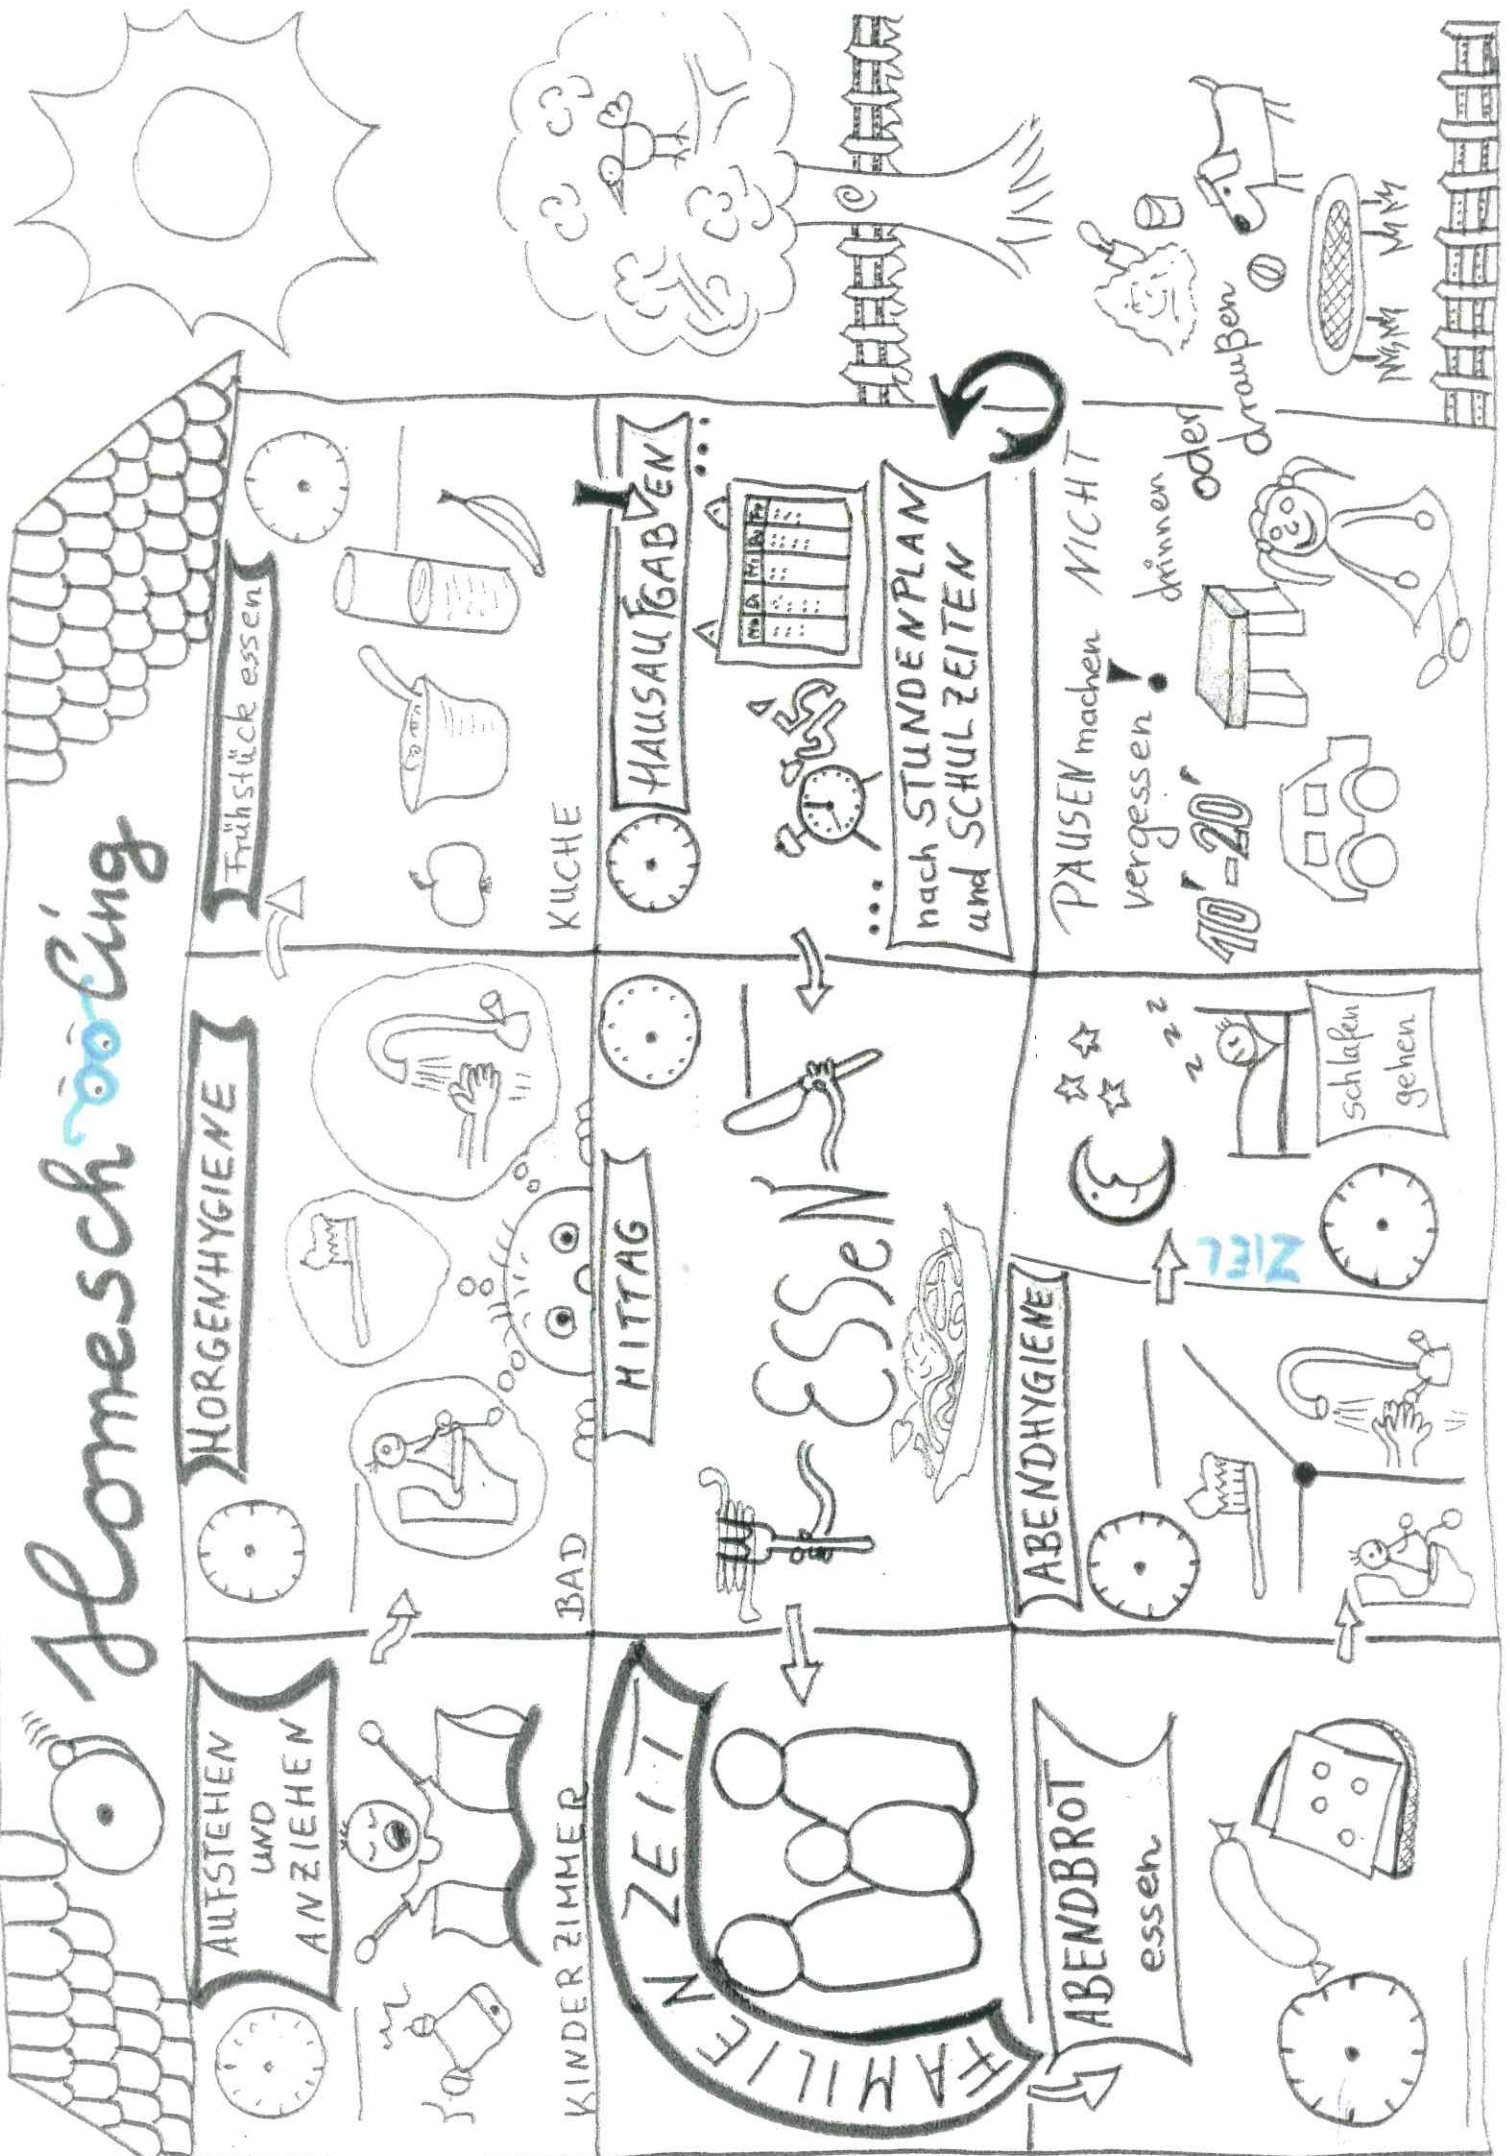 Homeschooling
AUFSTEHEN
UND
ANZIEHEN
KINDERZIMMER
MORGENHYGIENE
BAD
Frühstück essen
KÜCHE
HAUSAUFGABEN
...
Mo Di Mi Do Fr
...
nach STUNDENPLAN
und SCHULZEITEN
PAUSEN machen NICHT
vergessen!
10'-20'
drinnen
oder
draußen
MITTAG
ESSEN
FAMILIEN ZEIT
ABENDBROT
essen
ABENDHYGIENE
ZIEL
zzz
schlafen
gehen